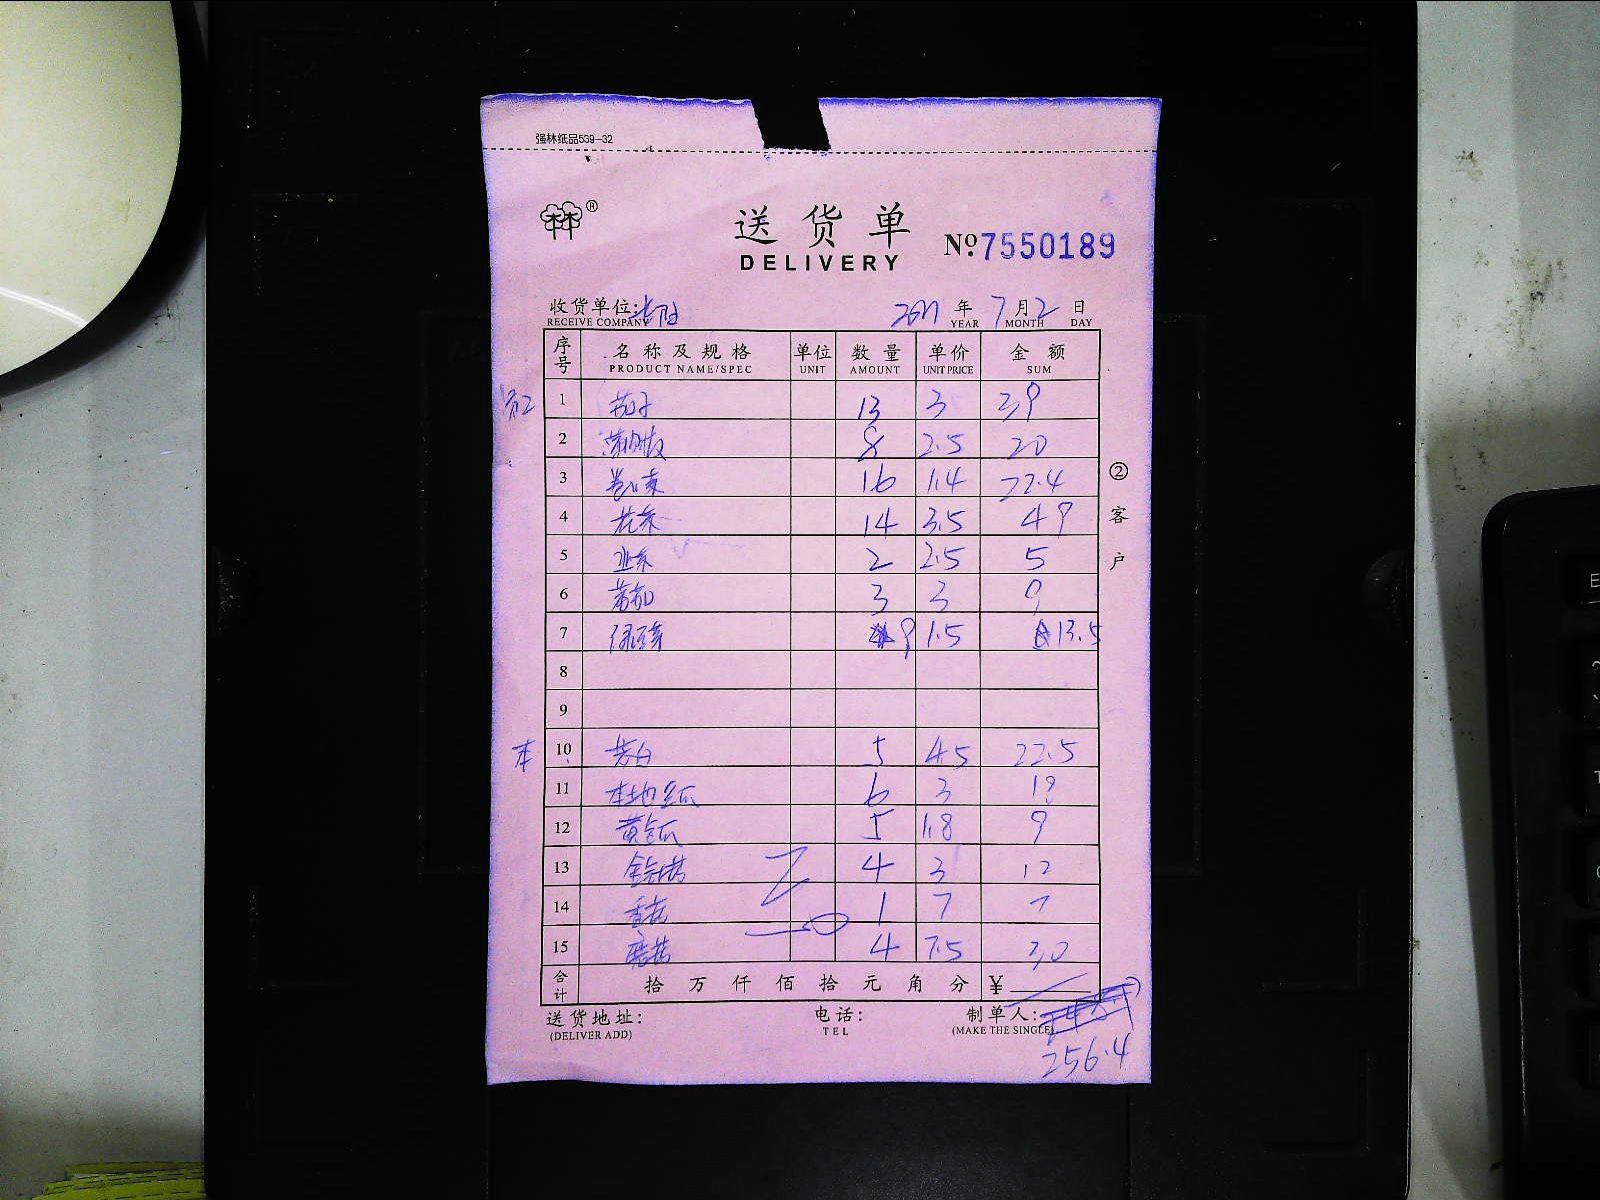 强林纸品539-32
林林®
送货单
DELIVERY
№7550189
收货单位: 年 7月2日
RECEIVE COMPANY YEAR MONTH DAY
序号 名称及规格 单位 数量 单价 金额
PRODUCT NAME/SPEC UNIT AMOUNT UNIT PRICE SUM
员工 1 茄子 13 3 39
2 8 2.5 20
3 卷心菜 16 1.4 22.4
4 花菜 14 3.5 49
5 韭菜 2 2.5 5
6 蕃茄 3 3 9
7 绿豆芽 9 1.5 13.5
8
9
本 10 茭白 5 4.5 22.5
11 本地丝瓜 6 3 18
12 黄金瓜 5 1.8 9
13 金针菇 4 3 12
14 香菇 1 7 7
15 蘑菇 4 7.5 30
合计 拾 万 仟 佰 拾 元 角 分 ¥
送货地址: 电话: 制单人:
(DELIVER ADD) TEL (MAKE THE SINGLE)
256.4
②客户